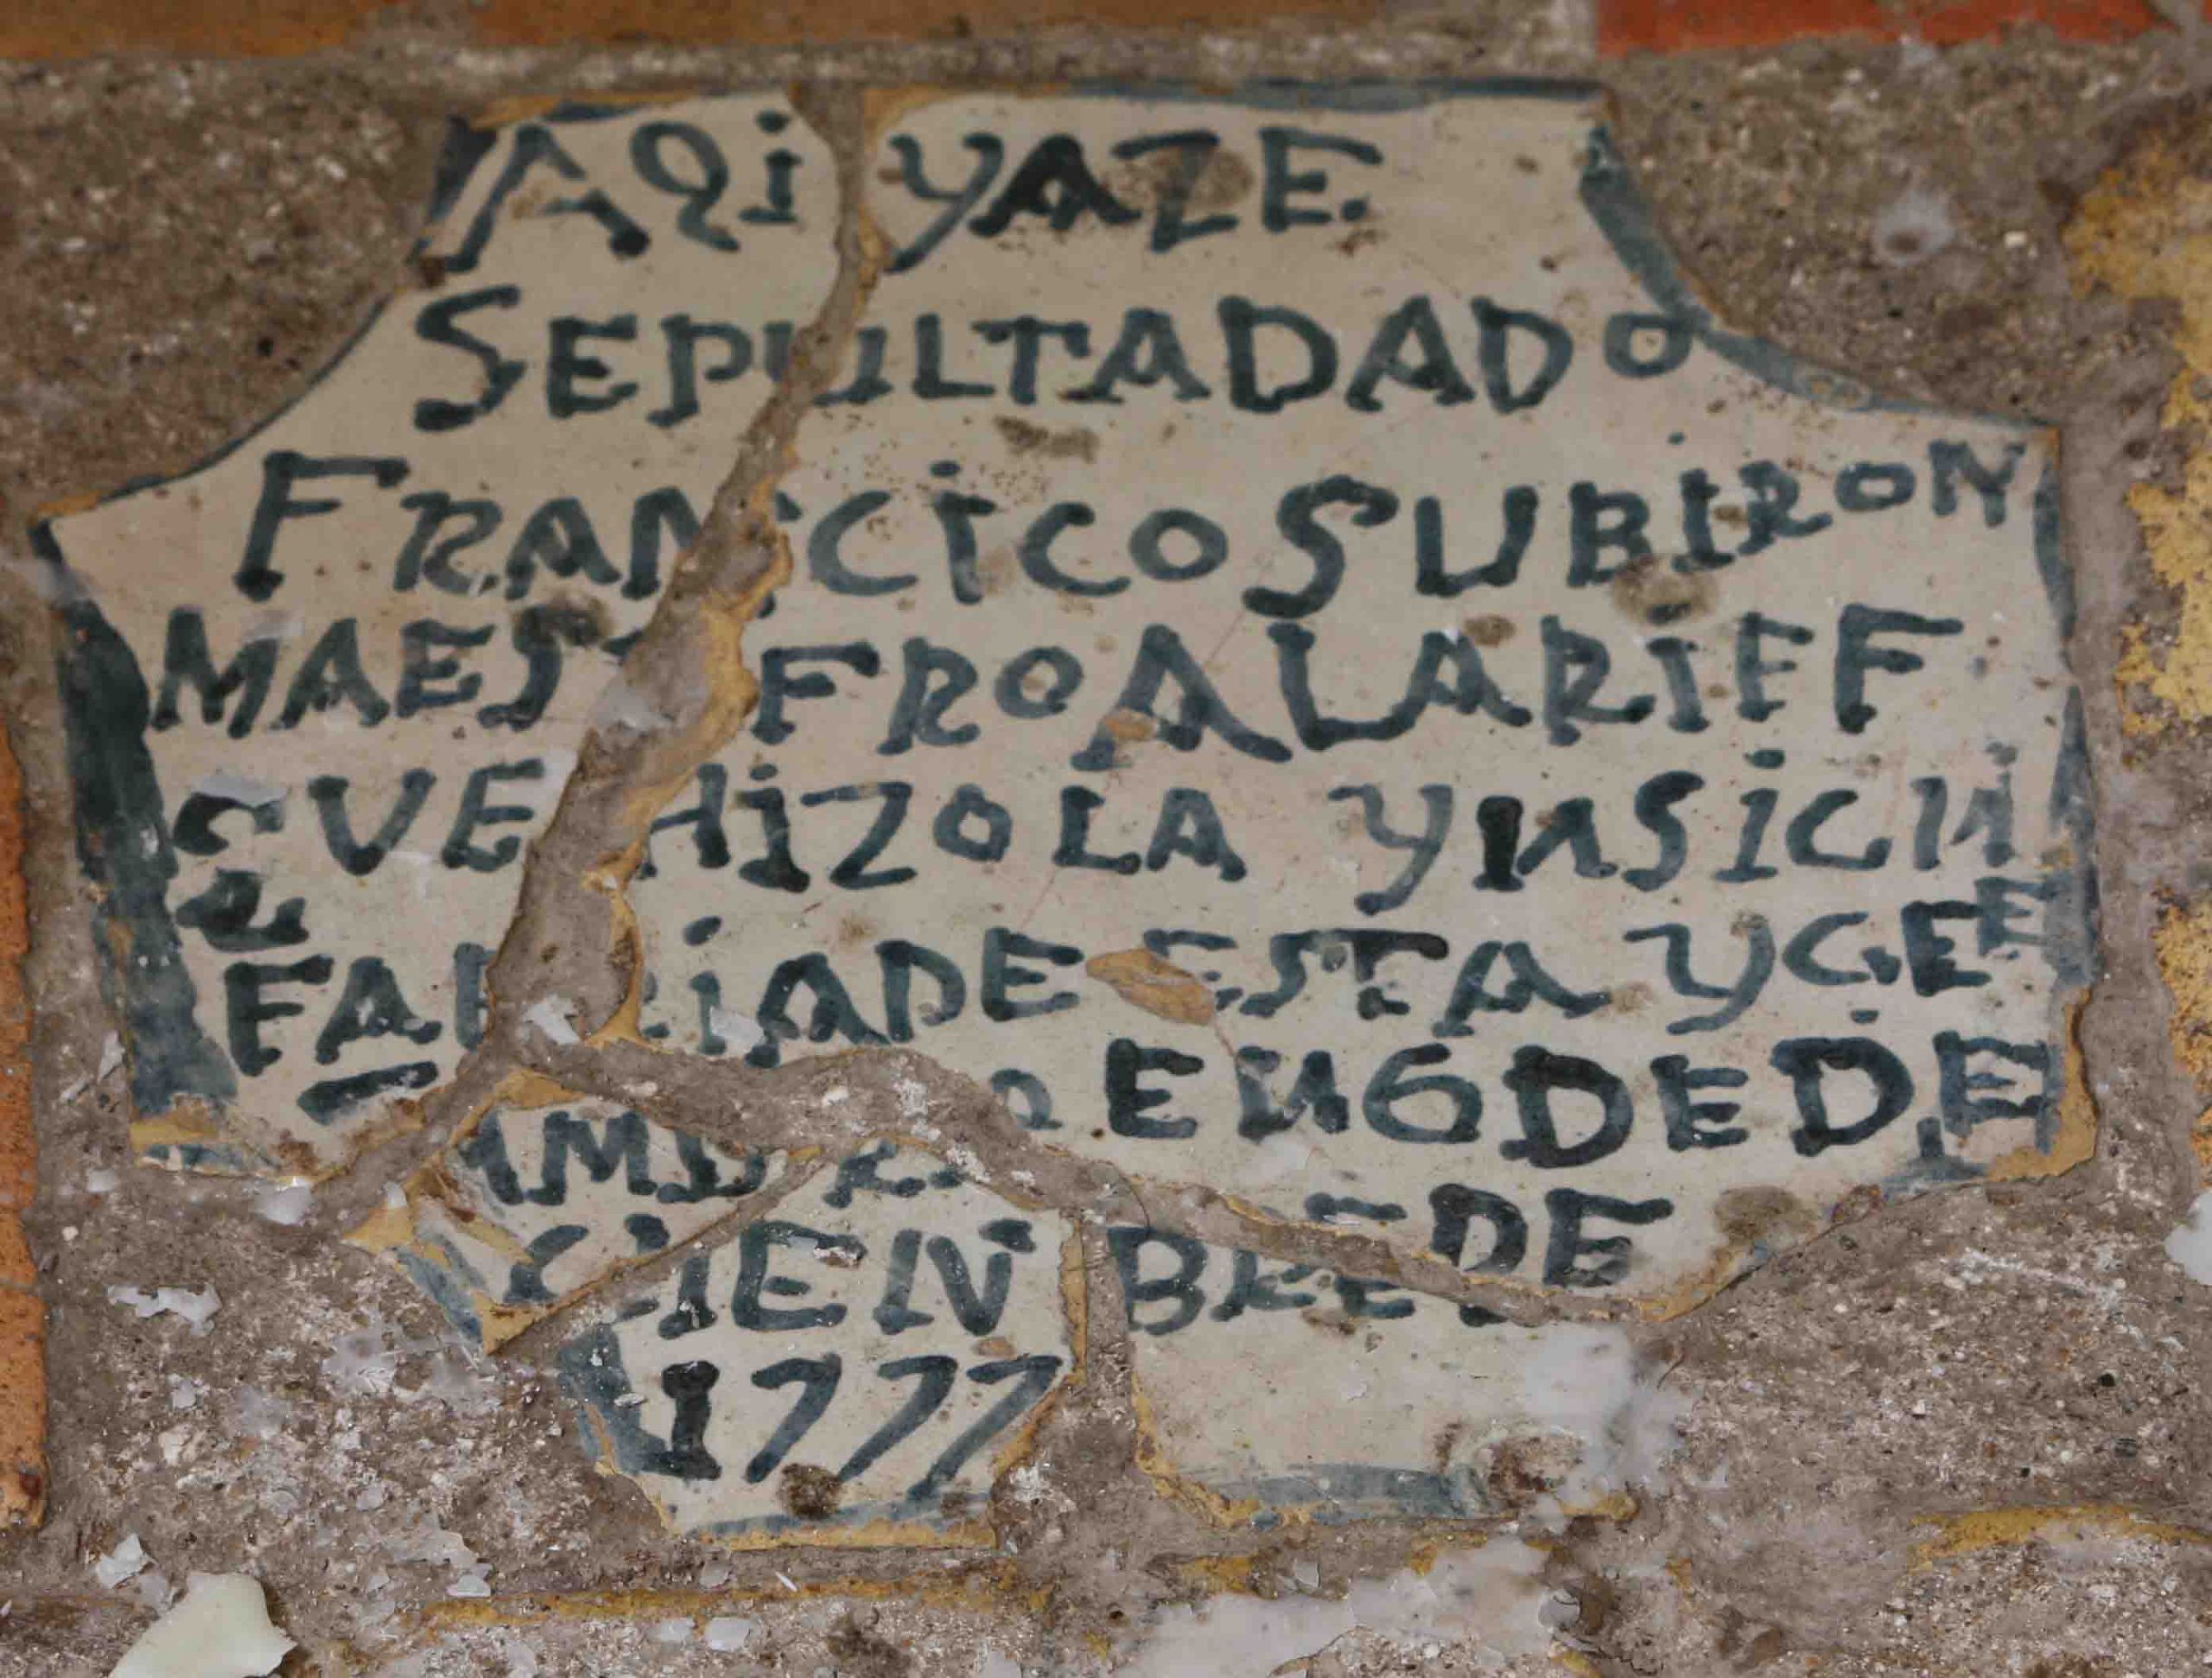 AQi YAZE
SEPULTADADO
FRANCiCO SUBIRON
MAES FRO ALARIFF
QVE HiZO LA YNSiGNi
DE ESTA YGEE
EN 6 DE DE
CiEN BRE DE
1777